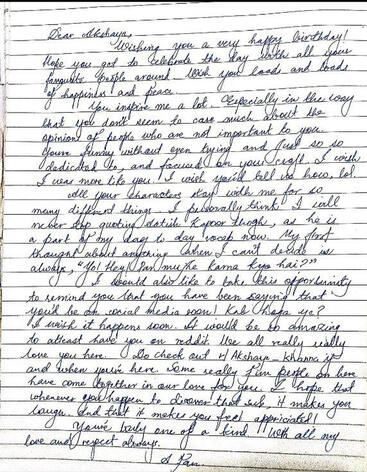 Dear Akshaye,
Wishing you a very happy birthday!
Hope you got to celebrate the day with all your
favourite people around. Wish you loads and loads
of happiness and peace.
You inspire me a lot. Especially in the way
that you don't seem to care much about the
opinion of people who are not important to you.
You're funny without even trying and just so so
dedicated to, and focused on your craft. I wish
I was more like you. I wish you'd tell us how, lol.
All your characters stay with me for so
many different things. I personally think I will
never stop quoting Kapoor though, as he is
a part of my day to day vocab now. My first
thought about anything when I can't decide is
always, "Yo! Hey karna kya hai?"
I would also like to take this opportunity
to remind you that you have been saying that
you'd be on social media soon! Kab hoga ye?
I wish it happens soon. It would be so amazing
to atleast have you on reddit. We all really really
love you here. Do check out r/Akshaye_Khanna if
and when you're here. Some really fun people on here
have come together in our love for you. I hope that
wherever you happen to discover that sub, it makes you
laugh. And that it makes you feel appriciated!
You're truly one of a kind. With all my
love and respect always.
A Fan